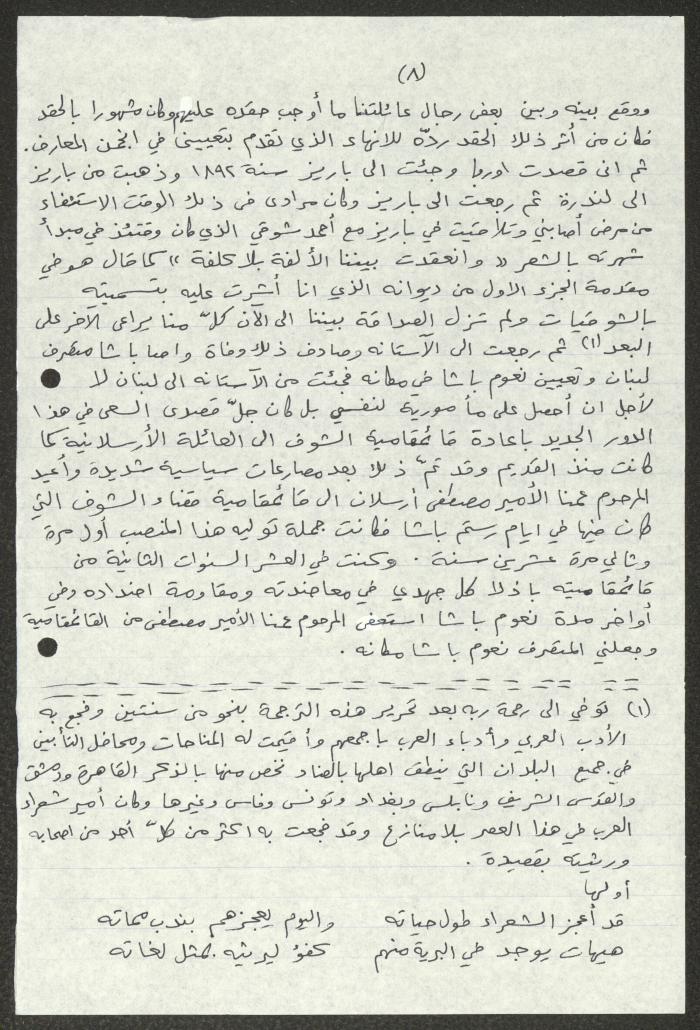 (٨)
ووقع بينه وبين بعض رجال عائلتنا ما أوجب حقده عليهم وكان مشهورا بالحقد
فكان من أثر ذلك الحقد ردّه للانهاء الذي تقدم بتعييني في انجمن المعارف.
ثم انى قصدت اوربا وجئت الى باريز سنة ١٨٩٢ وذهبت من باريز
الى لندرة ثم رجعت الى باريز وكان مرادى فى ذلك الوقت الاستشفاء
من مرض أصابني وتلاقيت في باريز مع أحمد شوقي الذي كان وقتئذ في مبدأ
شهرته بالشعر « وانعقدت بيننا الألفة بلا كلفة » كما قال هو في
مقدمة الجزء الاول من ديوانه الذي انا أشرت عليه بتسميته
بالشوقيات ولم تزل الصداقة بيننا الى الآن كلّ منا يراعى الآخر على
البعد (١) ثم رجعت الى الآستانه وصادف ذلك وفاة واصا باشا متصرف
لبنان وتعيين نعوم باشا في مكانه فجئت من الآستانه الى لبنان لا
لأجل ان أحصل على مأمورية لنفسي بل كان جلّ قصدى السعى في هذا
الدور الجديد باعادة قائمقامية الشوف الى العائلة الأرسلانية كما
كانت منذ القديم وقد تمّ ذلك بعد مصارعات سياسية شديدة وأعيد
المرحوم عمنا الأمير مصطفى أرسلان الى قائمقامية قضاء الشوف التي
كان فيها في ايام رستم باشا فكانت جملة توليه هذا المنصب أول مرة
وثاني مرة عشرين سنة . وكنت في العشر السنوات الثانية من
قائمقاميته باذلا كل جهدي في معاضدته ومقاومة اضداده وفي
أواخر مدة نعوم باشا استعفى المرحوم عمنا الأمير مصطفى من القائمقامية
وجعلني المتصرف نعوم باشا مكانه .
(١) توفي الى رحمة ربه بعد تحرير هذه الترجمة بنحو من سنتين وفجع به
الأدب العربي وأدباء العرب باجمعهم وأقيمت له المناحات ومحافل التأبين
في جميع البلدان التي ينطق اهلها بالضاد نخص منها بالذكر القاهرة ودمشق
والقدس الشريف ونابلس وبغداد وتونس وفاس وغيرها وكان أمير شعراء
العرب في هذا العصر بلا منازع وقد فجعت به اكثر من كلّ أحد من اصحابه
ورثيته بقصيدة .
أولها
قد أعجز الشعراء طول حياته واليوم يعجزهم بندب مماته
هيهات يوجد في البرية منهم كفؤ ليرثيه بمثل لغاته